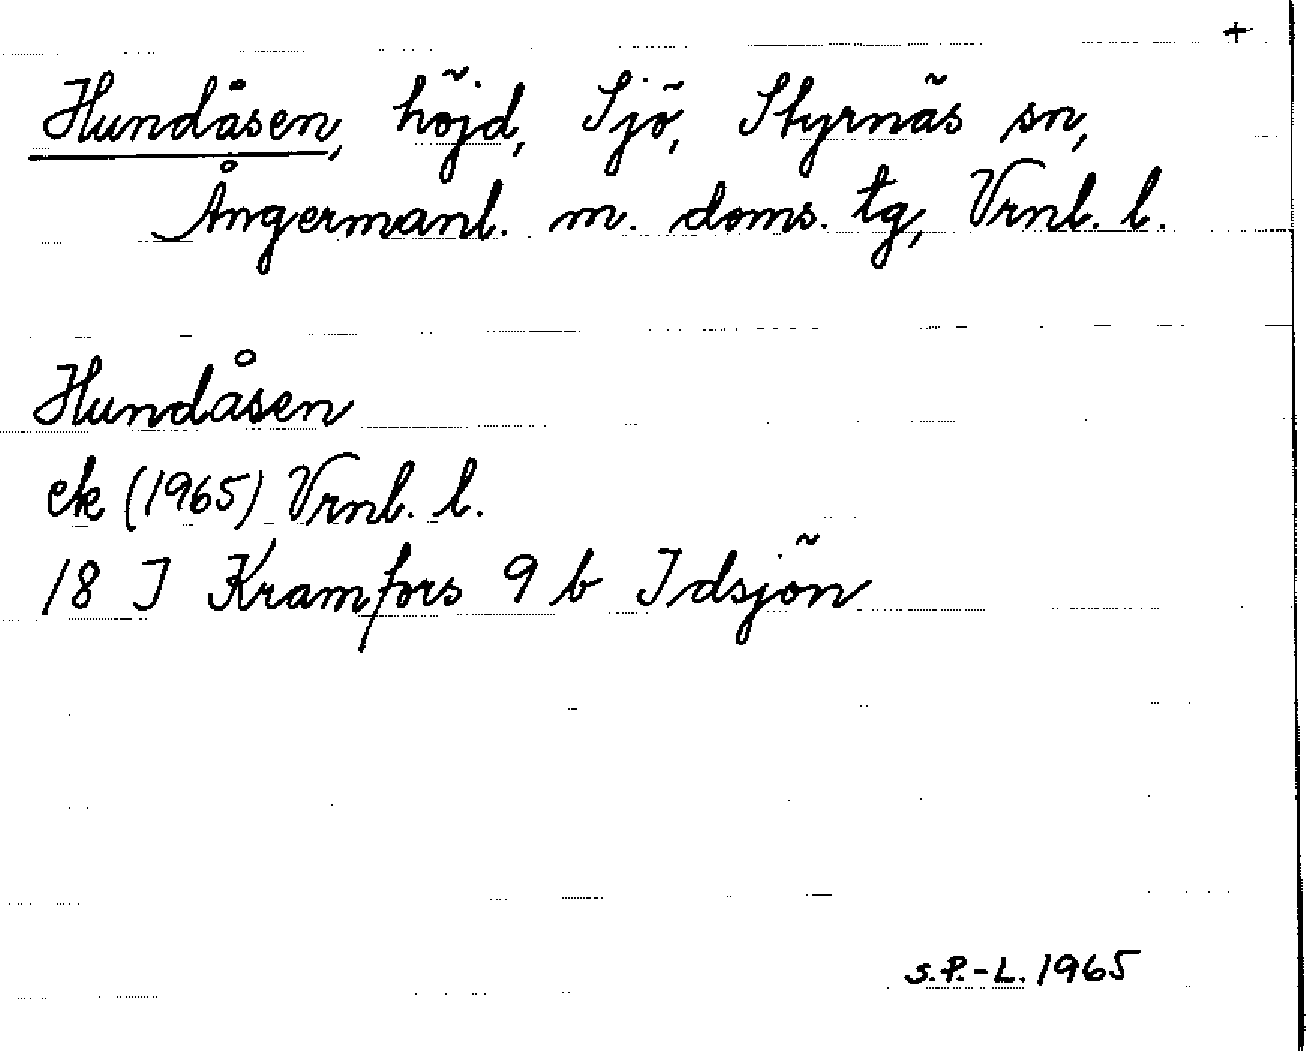 +
Hundåsen, höjd, Sjö, Styrnäs sn,
Ångermanl. m. doms. tg, Vrnl. l.
Hundåsen
ek (1965) Vrnl. l.
18 I Kramfors 9 b Idsjön
S.P.-L. 1965